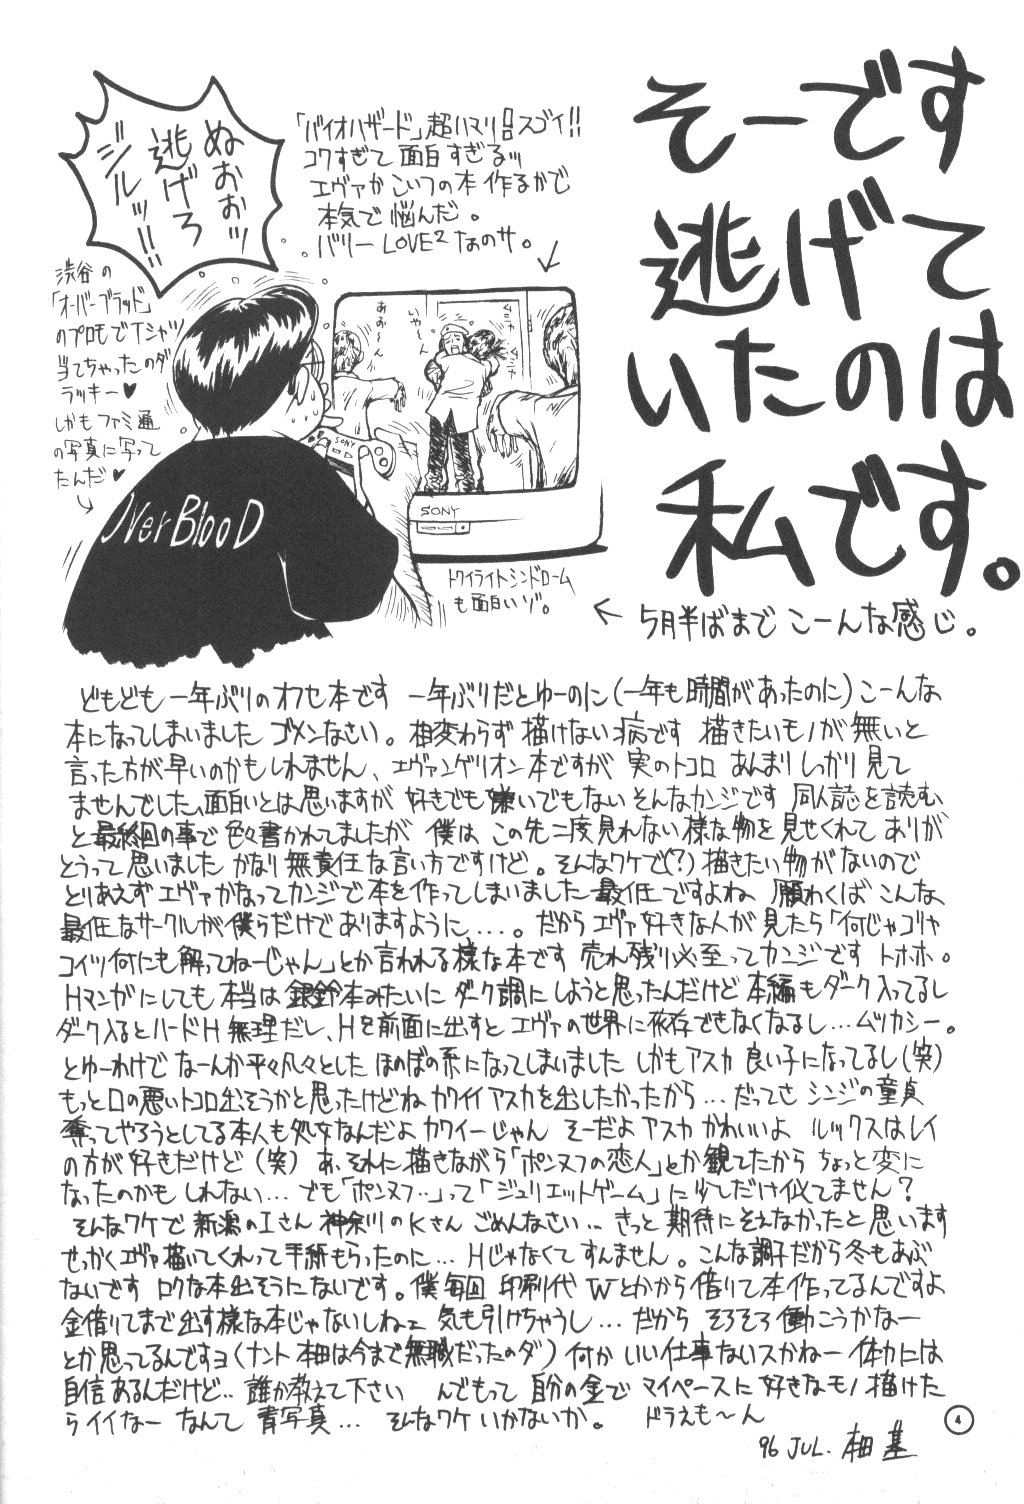 そーです
逃げて
いたのは
私です。
「バイオハザード」超ハマリ スゴイ!!
コワすぎて面白すぎるッ
エヴァかこいつの本作るかで
本気で悩んだ。
バリーLOVE2なのサ。
ぬおぉッ
逃げろ
ジルッ!!
渋谷の
「オーバーブラッド」
のプロモでTシャツ
当てちゃったのダ
ラッキー♥
しかもファミ通
の写真に写って
たんだ♥
あお〜ん
いや〜ん
OverBlooD
SONY
SONY
トワイライトシンドローム
も面白いゾ。
← 5月半ばまで こーんな感じ。
どもども 一年ぶりのオフセ本です 一年ぶりだとゆーのに(一年も時間があったのに)こーんな
本になってしまいました ゴメンなさい。相変わらず描けない病です 描きたいモノが無いと
言った方が早いのかもしれません、エヴァンゲリオン本ですが 実のトコロ あんまりしっかり見て
ませんでした、面白いとは思いますが 好きでも嫌いでもない そんなカンジです 同人誌を読む
と最終回の事で色々書かれてましたが 僕は この先二度見れない様な物を見せくれて ありが
とうって思いました かなり無責任な言い方ですけど。そんなワケで(?)描きたい物がないので
とりあえずエヴァかなってカンジで本を作ってしまいました 最低ですよね 願わくば こんな
最低なサークルが僕らだけでありますように…。だからエヴァ好きな人が見たら「何じゃゴリャ
コイツ何にも解ってねーじゃん」とか言われる様な本です 売れ残り必至ってカンジです トホホ。
Hマンガにしても 本当は 銀鈴本みたいに ダーク調にしようと思ったんだけど 本編もダーク入ってるし
ダーク入るとハードH無理だし、Hを前面に出すと エヴァの世界に依存できなくなるし…ムツカシー。
とゆーわけで なーんか平々凡々とした ほのぼの系になってしまいました しかもアスカ 良い子になってるし(笑)
もっと口の悪いトコロ出そうかと思ったけどね カワイイアスカを出したかったから…だってさ シンジの童貞
奪ってやろうとしてる本人も処女なんだよ カワイーじゃん そーだよアスカ かわいいよ ルックスはレイ
の方が好きだけど(笑)あ、それに描きながら「ポンヌフの恋人」とか観てたから ちょっと変に
なったのかも しれない…でも「ポンヌフ‥」って「ジュリエットゲーム」に少しだけ似てません?
そんなワケで 新潟のIさん 神奈川のKさん ごめんなさい‥きっと期待にそえなかったと思います
せっかくエヴァ描いてくれって手紙もらったのに…Hじゃなくてすんません。こんな調子だから冬もあぶ
ないです ロクな本出そうにないです。僕毎回 印刷代 Wとかから借りて本作ってるんですよ
金借りてまで出す様な本じゃないしねェ 気も引けちゃうし…だから そろそろ働こうかなー
とか思ってるんですヨ(ナント 柚は今まで無職だったのダ)何か いい仕事ないスかねー 体力には
自信あるんだけど‥誰か教えて下さい んでもって 自分の金で マイペースに好きなモノ描けた
らイイなー なんて 青写真… そんなワケいかないか。 ドラえも〜ん
96 JUL. 柚 基
4